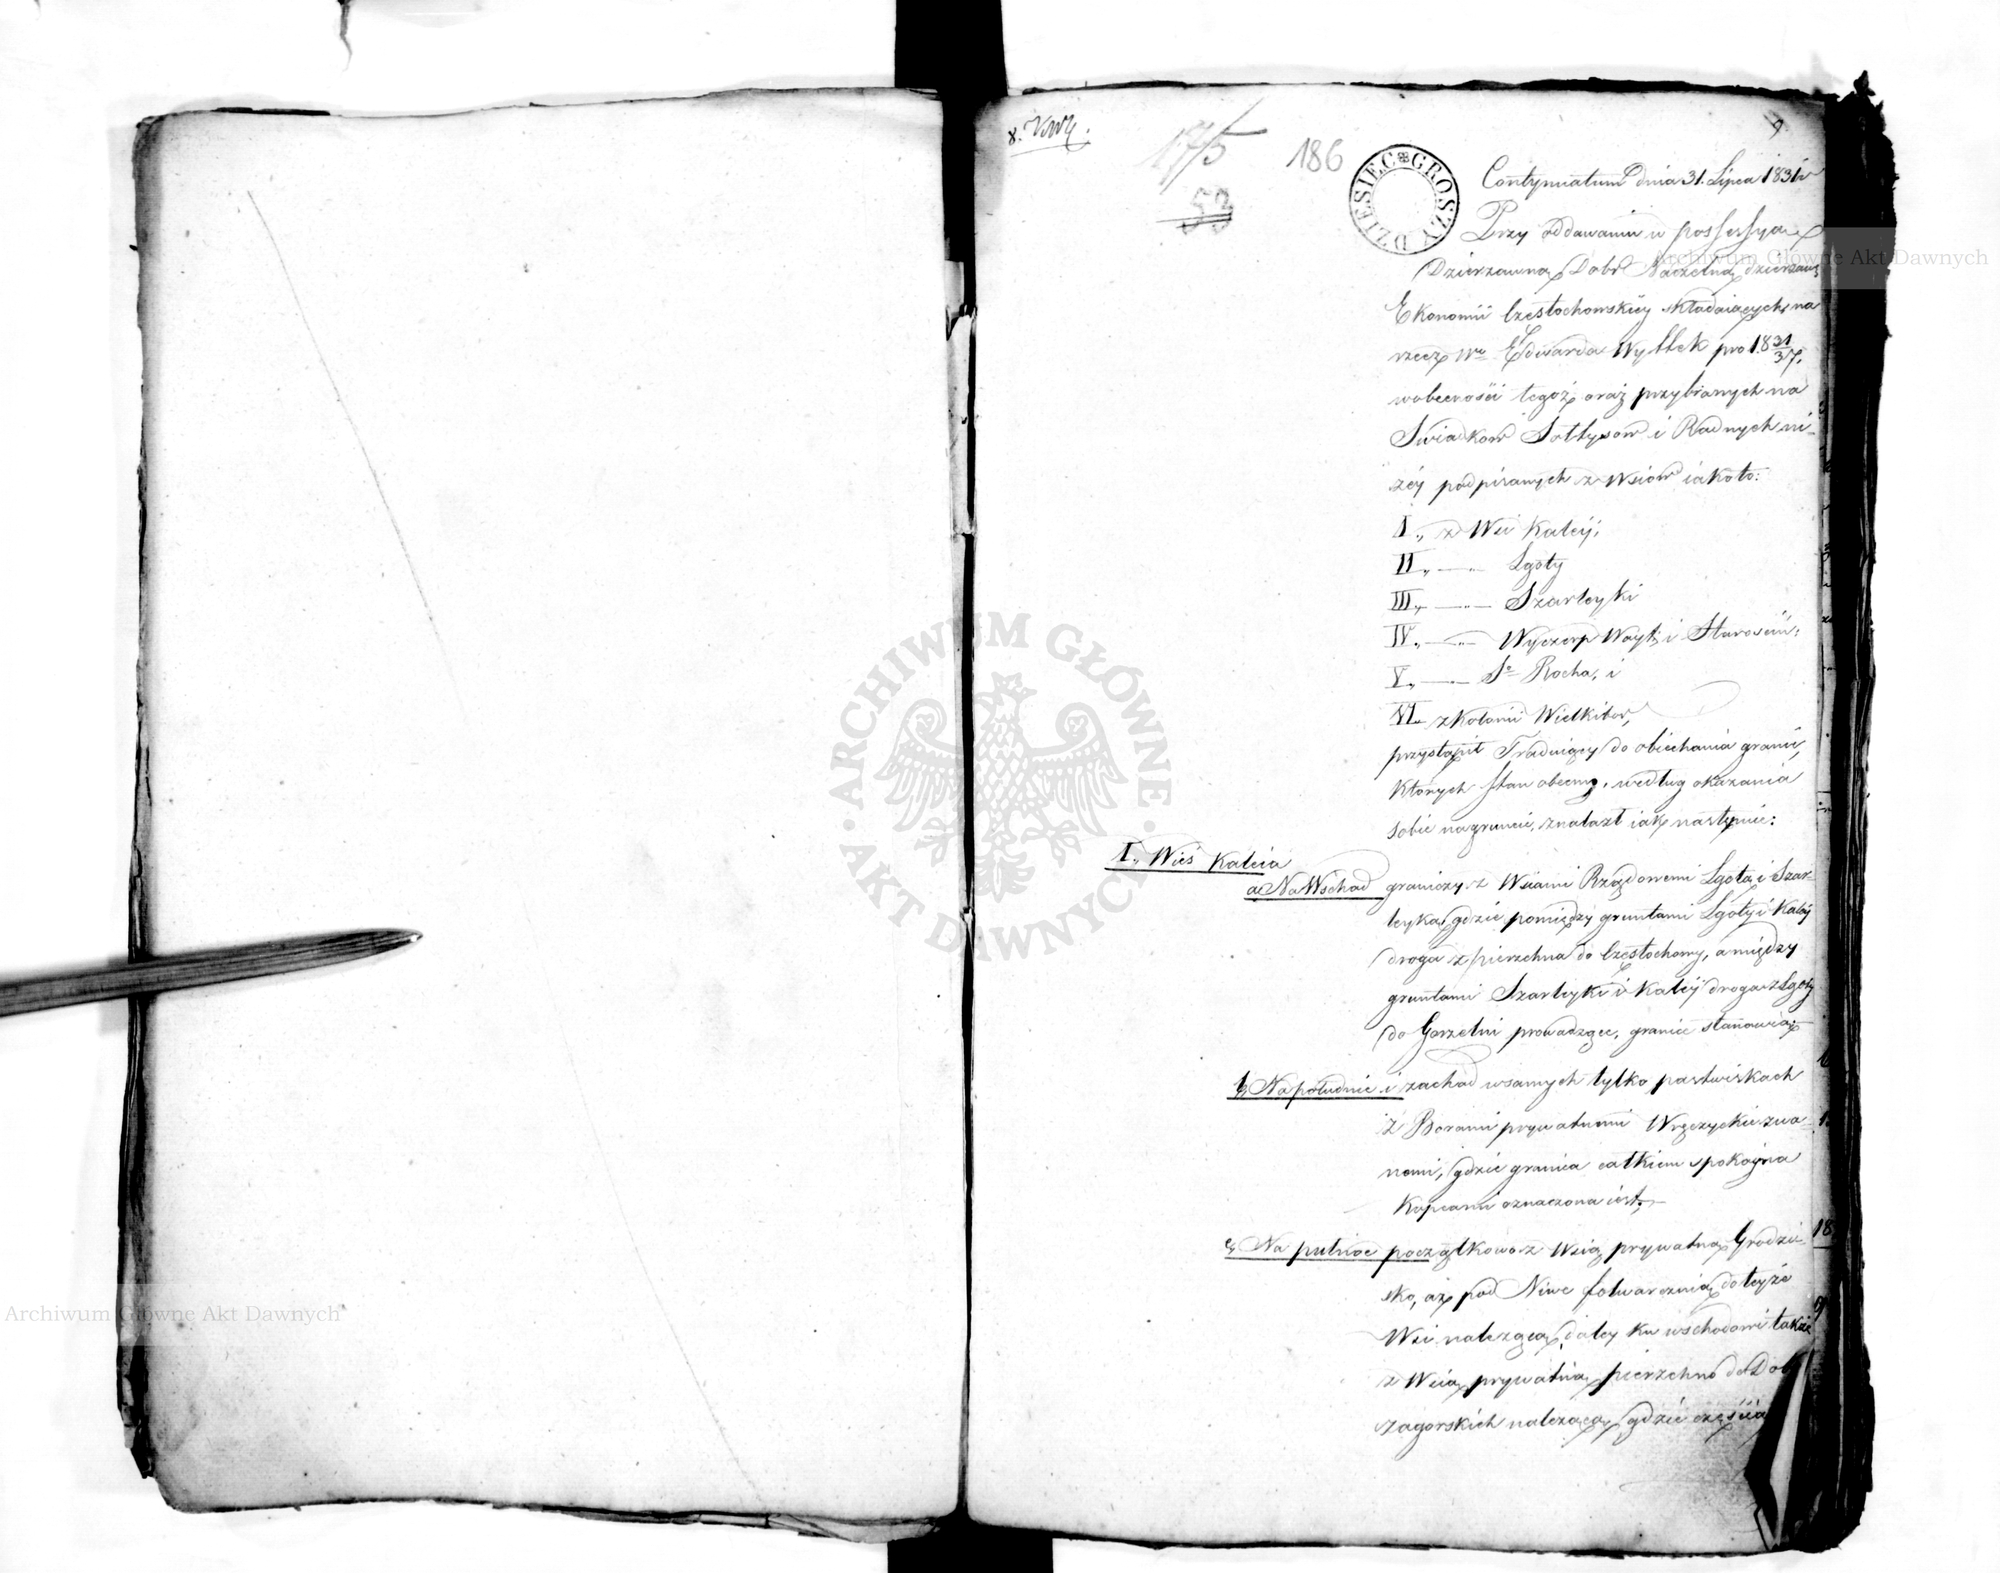 186
53
9
DZIESIEC GROSZY
Contynuatum dnia 31. Lipca 1831 r
Przy oddawaniu w possessyą
Dzierzawną Dobr Naczelną dzierzawę
Ekonomii Częstochowskiey składaiących, na
rzecz Wo Edwarda Wyttek pro 18 31/37,
w obecności tegoż oraz przybranych na
Swiadków Sołtysów i Radnych ni-
żéy podpisanych z Wsiów iakoto:
I., z Wsi Kaleij,
II., —„— Lgoty
III., —„— Szarleyki
IV., —„— Wyczerp Wóyt: i Staroscin:
V., —„— So Rocha, i
VI., z Kolonii Wielkibor,
przystąpił Traduiący do obiechania granic,
których stan obecny, według okazania
sobie na gruncie, znalazł iak następuie:
I., Wieś Kaleia
a, Na Wschod graniczy z Wsiami Rządowemi Lgotą i Szar-
leyką, gdzie pomiędzy gruntami Lgoty i Kaléy
droga z Pierzchna do Częstochowy, a między
gruntami Szarleyki i Kaléy droga z Lgoty
do Gorzelni prowadzące, granice stanowią;
b, Na południe i zachod w samych tylko pastwiskach
z Borami prywatnemi Wręczyckie zwa-
nemi, gdzie granica całkiem spokoyna
Kopcami oznaczona iest;
c, Na pułnoc początkowo z Wsią prywatną Grodzi-
sko, aż pod Niwę folwarczną do teyże
Wsi należącą, daley ku wschodowi także
z Wsią prywatną Pierzchno do Dobr
Zagorskich należącą, gdzie częścią
ARCHIWUM GŁÓWNE AKT DAWNYCH
Archiwum Główne Akt Dawnych
Archiwum Główne Akt Dawnych